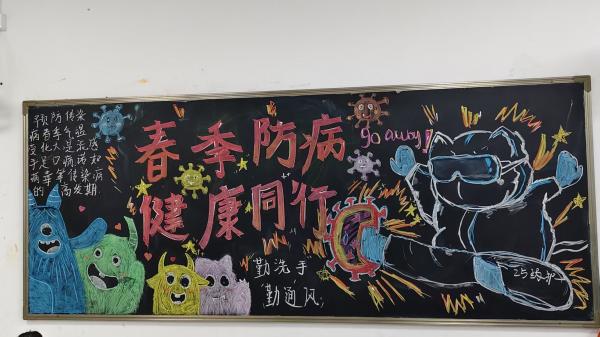 预防传染
病春季气温
变化大是流感
手足口病诺如
病毒等传染病
的高发期
春季防病
健康同行
go away!
勤洗手
勤通风